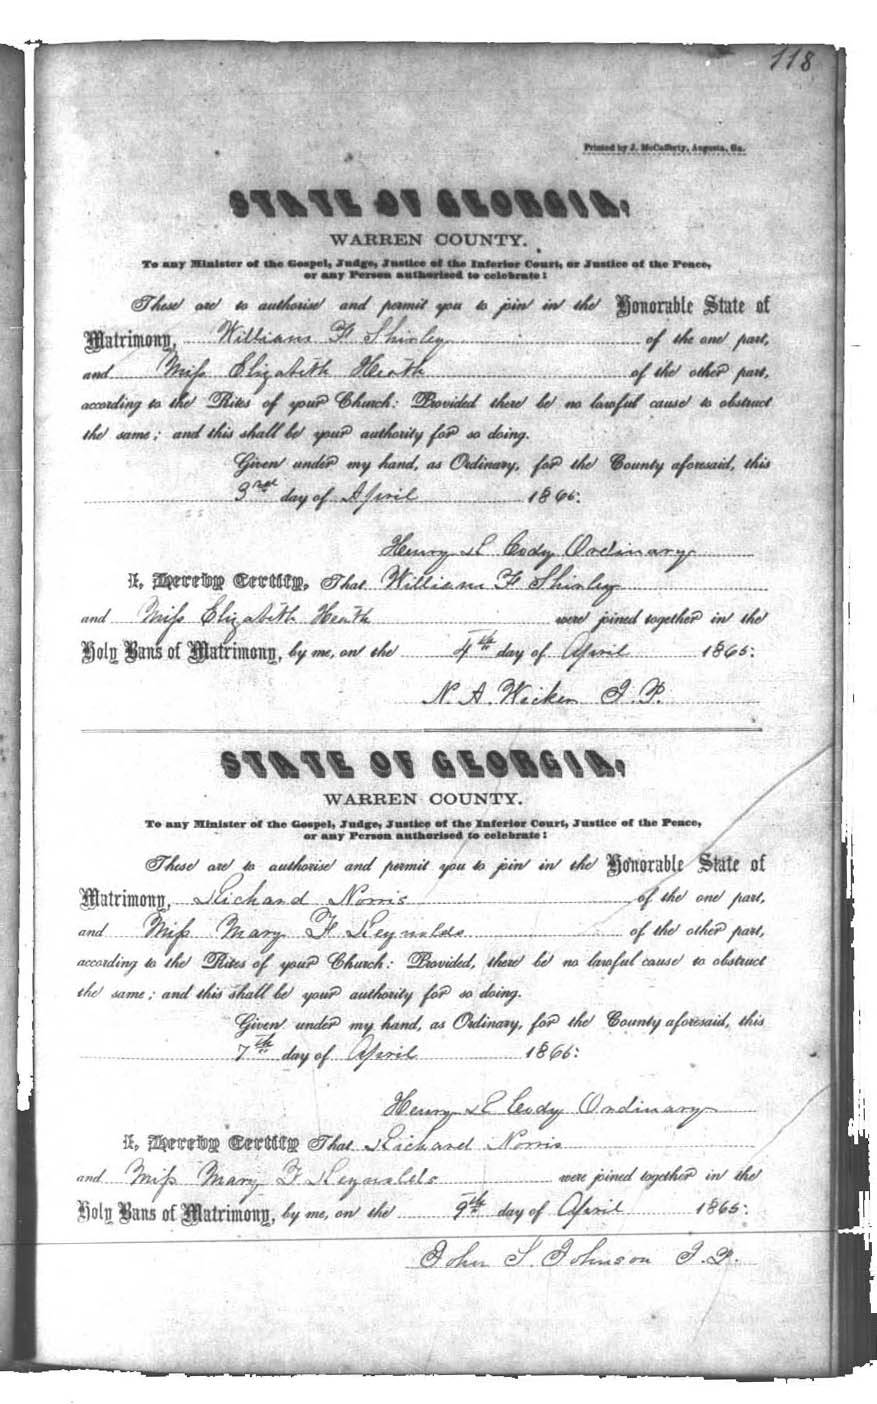 118
Printed by J. McCafferty, Augusta, Ga.
STATE OF GEORGIA,
WARREN COUNTY.
To any Minister of the Gospel, Judge, Justice of the Inferior Court, or Justice of the Peace,
or any Person authorised to celebrate:
These are to authorise and permit you to join in the Honorable State of
Matrimony, William F Shirley of the one part,
and Miss Elizabeth Heath of the other part,
according to the Rites of your Church: Provided there be no lawful cause to obstruct
the same; and this shall be your authority for so doing.
Given under my hand, as Ordinary, for the County aforesaid, this
3rd day of April 1865:
Henry L Cody Ordinary
I, Hereby Certify, That William F Shirley
and Miss Elizabeth Heath were joined together in the
Holy Bans of Matrimony, by me, on the 4th day of April 1865:
N. A. Wicker J. P.
STATE OF GEORGIA,
WARREN COUNTY.
To any Minister of the Gospel, Judge, Justice of the Inferior Court, Justice of the Peace,
or any Person authorised to celebrate:
These are to authorise and permit you to join in the Honorable State of
Matrimony, Richard Norris of the one part,
and Miss Mary F Reynalds of the other part,
according to the Rites of your Church: Provided, there be no lawful cause to obstruct
the same; and this shall be your authority for so doing.
Given under my hand, as Ordinary, for the County aforesaid, this
7th day of April 1865:
Henry L Cody Ordinary
I, Hereby Certify That Richard Norris
and Miss Mary F Reynalds were joined together in the
Holy Bans of Matrimony, by me, on the 9th day of April 1865:
John S. Johnson J. P.